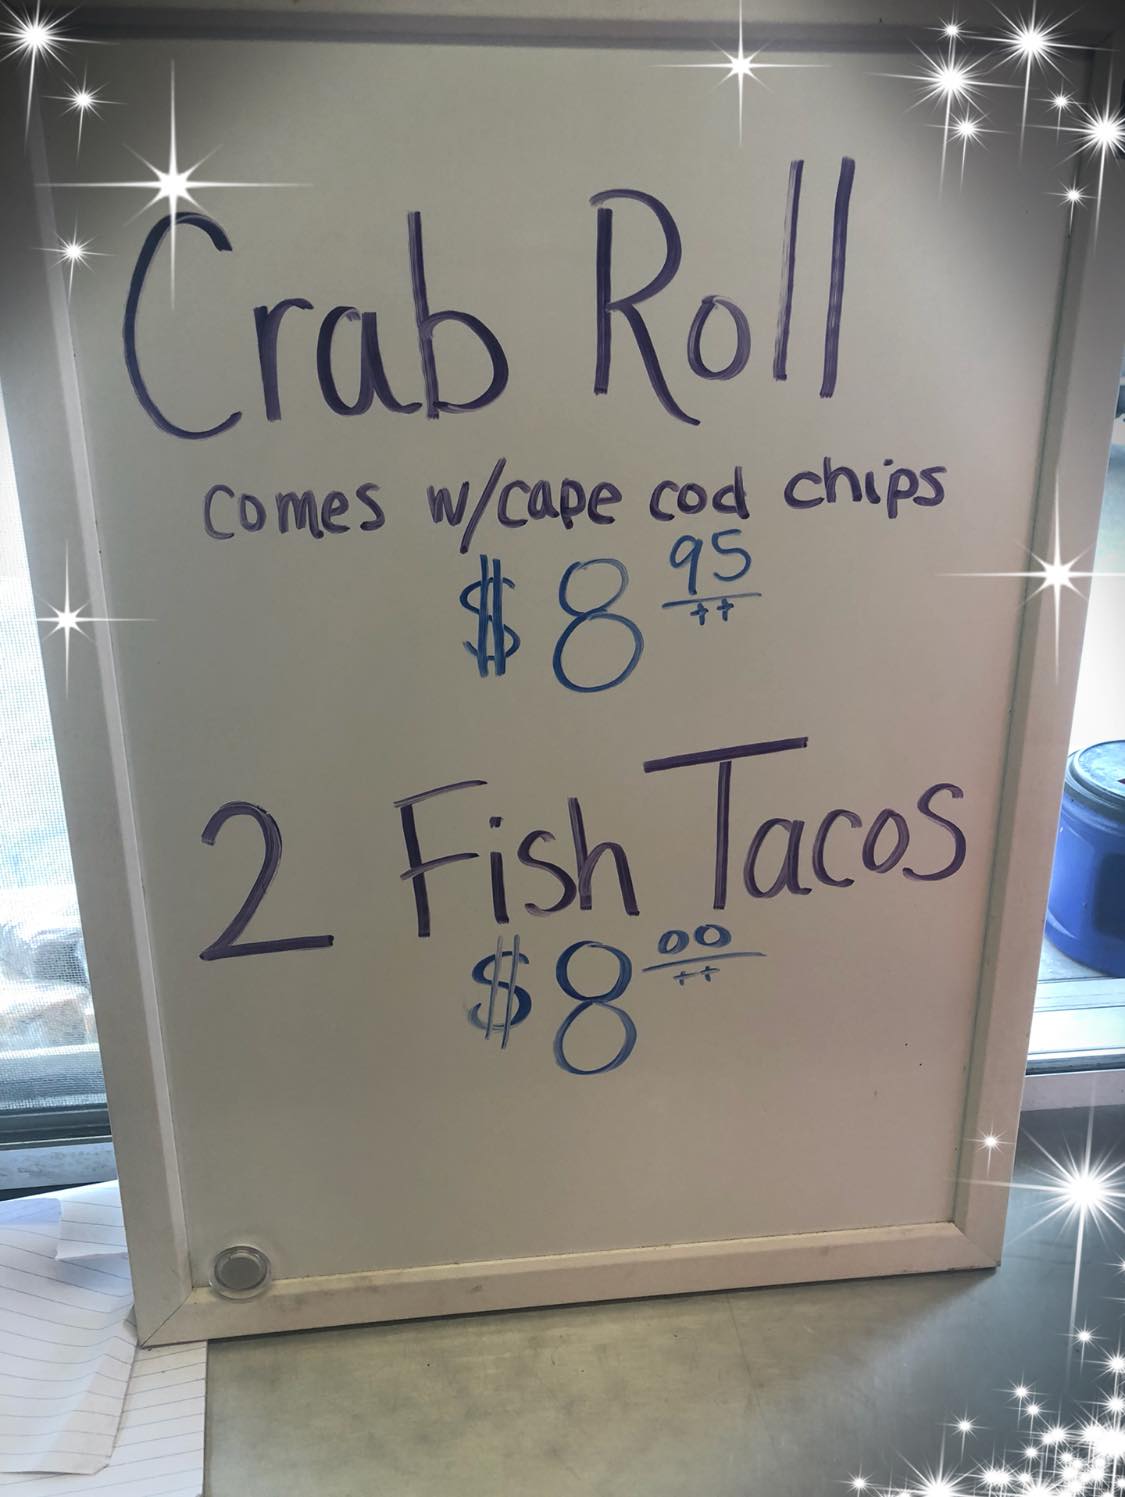 Crab Roll
comes w/cape cod chips
$8 95 ++
2 Fish Tacos
$8 00 ++